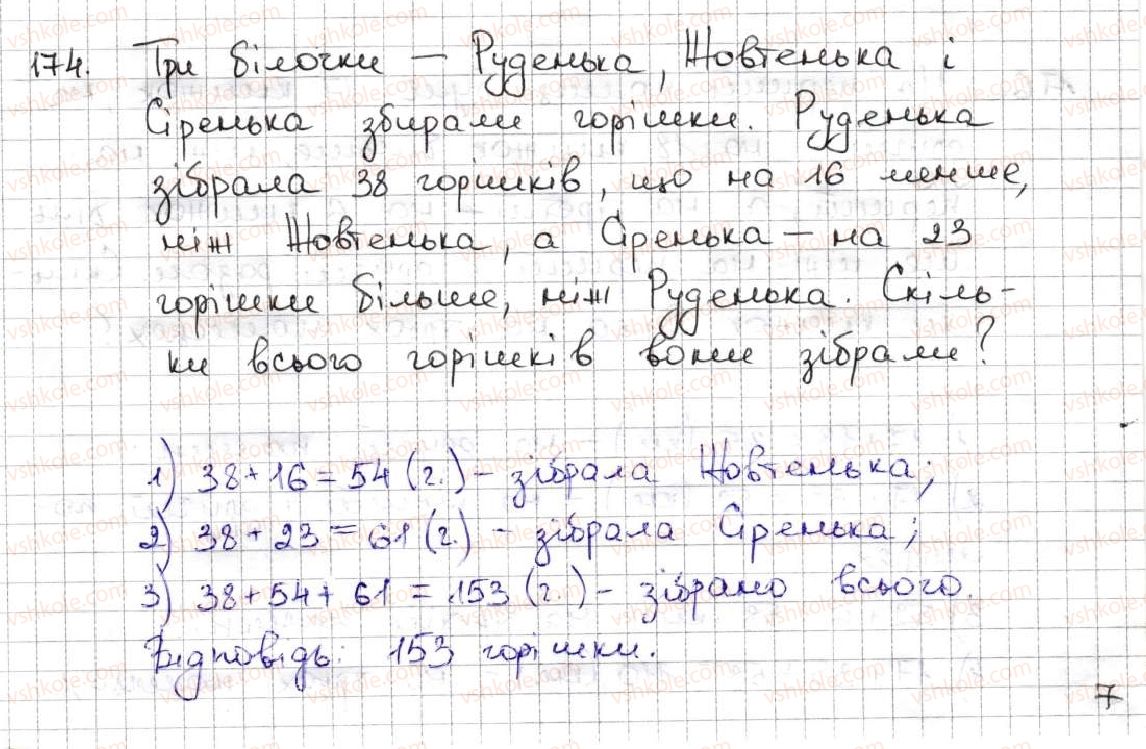 174. Три білочки — Руденька, Жовтенька і
Сіренька збирали горішки. Руденька
зібрала 38 горішків, що на 16 менше,
ніж Жовтенька, а Сіренька – на 23
горішки більше, ніж Руденька. Скіль-
ки всього горішків вони зібрали?
1) 38 + 16 = 54 (г.) – зібрала Жовтенька;
2) 38 + 23 = 61 (г.) – зібрала Сіренька;
3) 38 + 54 + 61 = 153 (г.) – зібрано всього.
Відповідь: 153 горішки.
7
vshkole.com